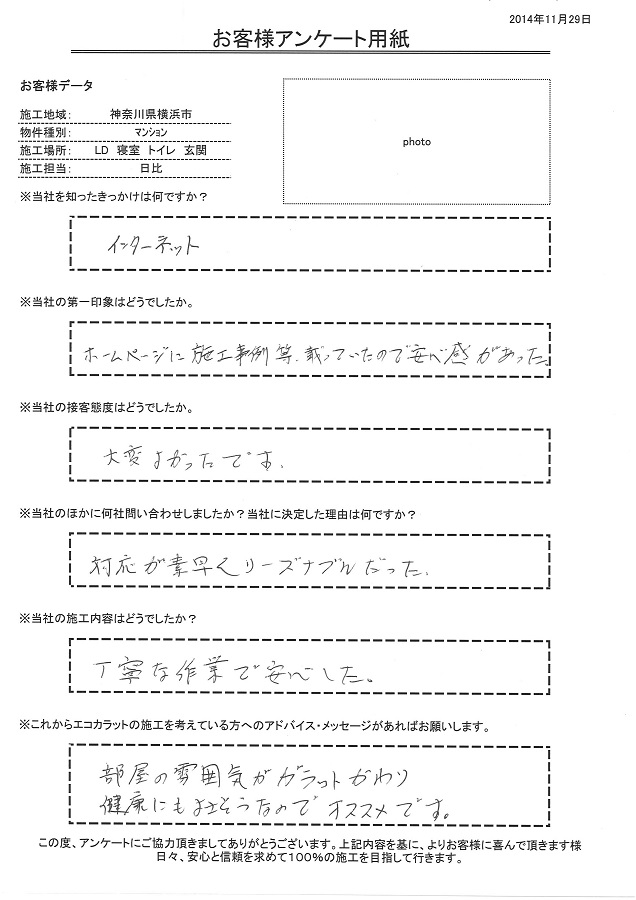 2014年11月29日
お客様アンケート用紙
お客様データ
施工地域： 神奈川県横浜市
物件種別： ﾏﾝｼｮﾝ
施工場所： LD 寝室 トイレ 玄関
施工担当： 日比
photo
※当社を知ったきっかけは何ですか？
インターネット
※当社の第一印象はどうでしたか。
ホームページに施工事例等、載っていたので安心感があった。
※当社の接客態度はどうでしたか。
大変よかったです。
※当社のほかに何社問い合わせしましたか？当社に決定した理由は何ですか？
対応が素早くリーズナブルだった。
※当社の施工内容はどうでしたか？
丁寧な作業で安心した。
※これからエコカラットの施工を考えている方へのアドバイス・メッセージがあればお願いします。
部屋の雰囲気がガラットかわり
健康にもよさそうなのでオススメです。
この度、アンケートにご協力頂きましてありがとうございます。上記内容を基に、よりお客様に喜んで頂きます様
日々、安心と信頼を求めて100％の施工を目指して行きます。